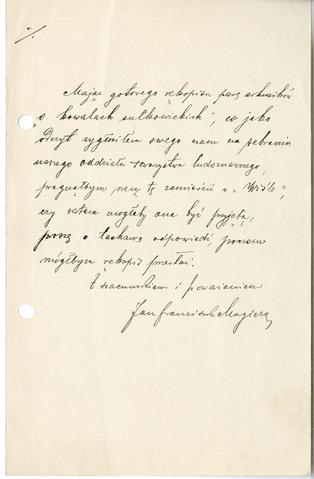 Mając gotowego rękopisu parę arkusików
"o kowalach sułkowickich", co jako
odczyt wygłosiłem swego czasu na zebraniu
naszego oddziału towarzystwa ludoznawczego,
pragnąłbym rzecz tę zamieścić w "Wiśle",
czy zatem mogłaby ona być przyjętą,
proszę o łaskawą odpowiedź, poczem
mógłbym rękopis przesłać.
Z szacunkiem i poważaniem
Jan Franciszek Magiera